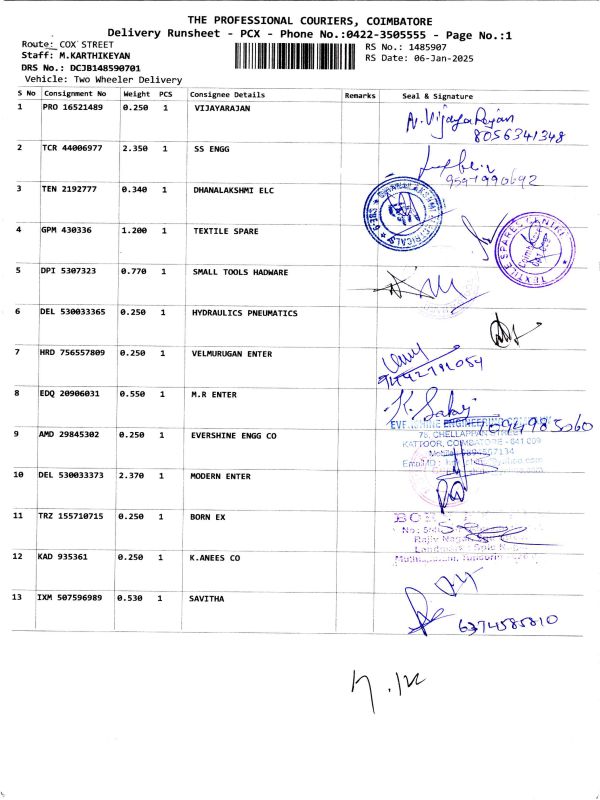 THE PROFESSIONAL COURIERS, COIMBATORE
Delivery Runsheet - PCX - Phone No.:0422-3505555 - Page No.:1
Route: COX STREET
RS No.: 1485907
Staff: M.KARTHIKEYAN
RS Date: 06-Jan-2025
DRS No.: DCJB148590701
Vehicle: Two Wheeler Delivery
S No Consignment No Weight PCS Consignee Details Remarks Seal & Signature
1 PRO 16521489 0.250 1 VIJAYARAJAN
N.Vijaya Rajan
8056341348
2 TCR 44006977 2.350 1 SS ENGG
9591990692
3 TEN 2192777 0.340 1 DHANALAKSHMI ELC
4 GPM 430336 1.200 1 TEXTILE SPARE
TEXTILE SPARES CENTRE
5 DPI 5307323 0.770 1 SMALL TOOLS HADWARE
6 DEL 530033365 0.250 1 HYDRAULICS PNEUMATICS
7 HRD 756557809 0.250 1 VELMURUGAN ENTER
8 EDQ 20906031 0.550 1 M.R ENTER
EVERSHINE ENGINEERING COMPANY
9 AMD 29845302 0.250 1 EVERSHINE ENGG CO
78, CHELLAPPAN STREET
KATTOOR, COIMBATORE - 641 009
10 DEL 530033373 2.370 1 MODERN ENTER
11 TRZ 155710715 0.250 1 BORN EX
12 KAD 935361 0.250 1 K.ANEES CO
13 IXM 507596989 0.530 1 SAVITHA
6374585810